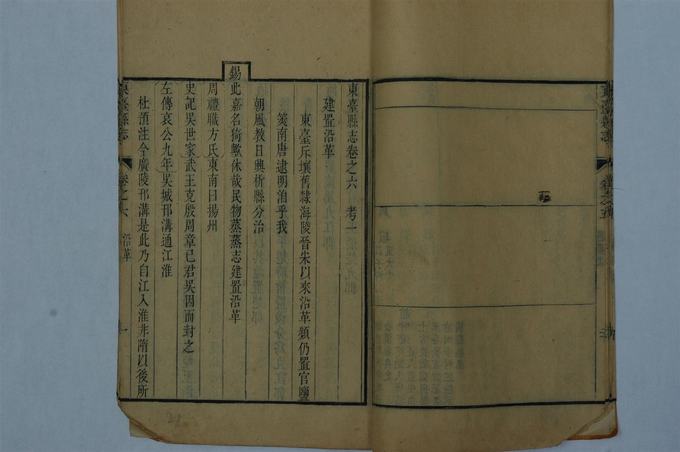 東臺縣志卷之六　考一
建置沿革
東臺斥壤舊隷海陵晉宋以來沿革類仍置官鹽
筴南唐逮明洎乎我
朝風教日興析縣分治
錫此嘉名猗歟休哉民物蒸蒸志建置沿革
周禮職方氏東南曰揚州
史記吳世家武王克殷周章已君吳因而封之
左傳哀公九年吳城邗溝通江淮
杜預注今廣陵邗溝是此乃自江入淮非隋以後所
東臺縣志　卷之六　沿革　一